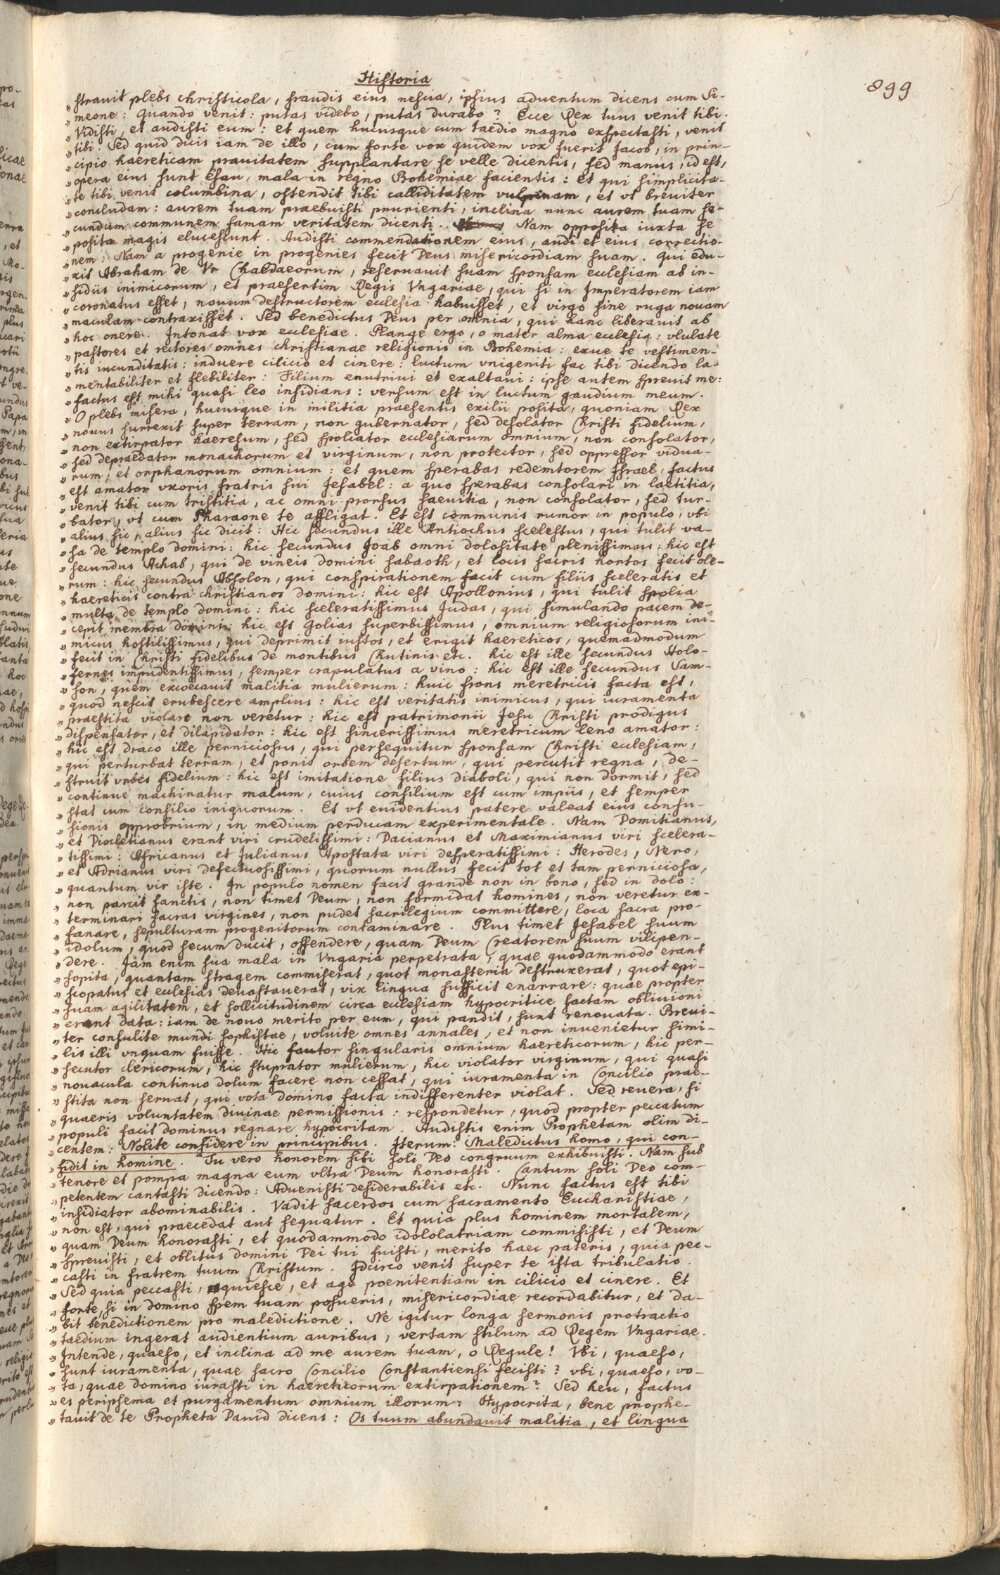 Historia
899
„ strauit plebs christicola, fraudis eius nescia, ipsius aduentum dicens cum Si-
„ meone: quando venit: putas videbo, putas durabo? Ecce Rex tuus venit tibi.
„ Vidisti, et audisti eum: et quem hucusque cum taedio magno exspectasti, venit
„ tibi. Sed quid dicis iam de illo, cum forte vox quidem vox fuerit Jacob, in prin-
„ cipio haereticam prauitatem supplantare se velle dicentis, sed manus, id est,
„ opera eius sunt Esau, mala in regno Bohemiae facientis: et qui simplicita-
„ te tibi venit columbina, ostendit tibi calliditatem vulpinam, et vt breuiter
„ concludam: aurem tuam praebuisti prurienti, inclina nunc aurem tuam se-
„ cundum communem famam veritatem dicenti. Nam opposita iuxta se
„ posita magis elucescunt. Audisti commendationem eius, audi et eius correctio-
„ nem: Nam a progenie in progenies fecit Deus misericordiam suam. Qui edu-
„ xit Abraham de Vr Chaldaeorum, reseruauit suam sponsam ecclesiam ab in-
„ sidiis inimicorum, et praesertim Regis Vngariae, qui si in Imperatorem iam
„ coronatus esset, nouum destructorem ecclesia habuisset, et virgo sine ruga nouam
„ maculam contraxisset. Sed benedictus Deus per omnia, qui hanc liberauit ab
„ hoc onere. Intonat vox ecclesiae. Plange ergo, o mater alma ecclesia: vlulate
„ pastores et rectores omnes christianae religionis in Bohemia: exue te vestimen-
„ tis iucunditatis: induere cilicio et cinere: luctum vnigeniti fac tibi dicendo la-
„ mentabiliter et flebiliter: Filium enutriui et exaltaui: ipse autem spreuit me:
„ factus est mihi quasi leo insidians: versum est in luctum gaudium meum.
„ O plebs misera, hucusque in militia praesentis exilii posita, quoniam Rex
„ nouus surrexit super terram, non gubernator, sed desolator Christi fidelium,
„ non extirpator haeresum, sed spoliator ecclesiarum omnium, non consolator,
„ sed depraedator monachorum et virginum, non protector, sed oppressor vidua-
„ rum, et orphanorum omnium: et quem sperabas redemtorem Israel, factus
„ est amator vxoris fratris sui Jesabel: a quo sperabas consolari in laetitia,
„ venit tibi cum tristitia, ac omni prorsus saeuitia, non consolator, sed tur-
„ bator, vt cum Pharaone te affligat. Et est communis rumor in populo, vbi
„ alius sic, alius sic dicit: Hic secundus ille Antiochus scelestus, qui tulit va-
„ sa de templo domini: hic secundus Joab omni dolositate plenissimus: hic est
„ secundus Achab, qui de vineis domini sabaoth, et locis sacris hortos fecit ole-
„ rum: hic secundus Absolon, qui conspirationem facit cum filiis sceleratis et
„ haereticis contra christianos domini: hic est Apollonius, qui tulit spolia
„ multa de templo domini: hic sceleratissimus Judas, qui simulando pacem de-
„ cepit membra domini: hic est Golias superbissimus, omnium religiosorum ini-
„ micus hostilissimus, qui deprimit iustos, et erigit haereticos, quemadmodum
„ fecit in Christi fidelibus de montibus Chutinis etc. hic est ille secundus Holo-
„ fernes impudentissimus, semper crapulatus a vino: hic est ille secundus Sam-
„ son, quem excoecauit malitia mulierum: huic frons meretricis facta est,
„ quod nescit erubescere amplius: hic est veritatis inimicus, qui iuramenta
„ praestita violare non veretur: hic est patrimonii Jesu Christi prodigus
„ dispensator, et dilapidator: hic est sincerissimus meretricum leno amator:
„ hic est draco ille perniciosus, qui persequitur sponsam Christi ecclesiam,
„ qui perturbat terram, et ponit orbem desertum, qui percutit regna, de-
„ struit vrbes fidelium: hic est imitatione filius diaboli, qui non dormit, sed
„ continue machinatur malum, cuius consilium est cum impiis, et semper
„ stat cum consilio iniquorum. Et vt euidentius patere valeat eius confu-
„ sionis opprobrium, in medium perducam experimentale. Nam Domitianus,
„ et Diocletianus erant viri crudelissimi: Dacianus et Maximianus viri scelera-
„ tissimi: Africanus et Julianus Apostata viri desperatissimi: Herodes, Nero,
„ et Adrianus viri defectuosissimi, quorum nullus fecit tot et tam perniciosa,
„ quantum vir iste. In populo nomen facit grande non in bono, sed in dolo:
„ non parcit sanctis, non timet Deum, non formidat homines, non veretur ex-
„ terminari sacras virgines, non pudet sacrilegium committere, loca sacra pro-
„ fanare, sepulturam progenitorum contaminare. Plus timet Jesabel suum
„ idolum, quod secum ducit, offendere, quam Deum Creatorem suum vilipen-
„ dere. Jam enim sua mala in Vngaria perpetrata, quae quodammodo erant
„ sopita, quantam stragem commiserat, quot monasteria destruxerat, quot epi-
„ scopatus et ecclesias deuastauerat, vix lingua sufficit enarrare: quae propter
„ suam agilitatem, et sollicitudinem circa ecclesiam hypocritice factam obliuioni
„ erant data: iam de nouo merito per eum, qui pandit, sunt renouata. Breui-
„ ter consulite mundi sophistae, voluite omnes annales, et non inuenietur simi-
„ lis illi vnquam fuisse. Hic fautor singularis omnium haereticorum, hic per-
„ secutor clericorum, hic stuprator mulierum, hic violator virginum, qui quasi
„ nouacula continuo dolum facere non cessat, qui iuramenta in Concilio prae-
„ stita non seruat, qui vota domino facta indifferenter violat. Sed reuera, si
„ quaeris voluntatem diuinae permissionis: respondetur, quod propter peccatum
„ populi facit dominus regnare hypocritam. Audistis enim Prophetam olim di-
„ centem: Nolite confidere in principibus. Iterum: Maledictus homo, qui con-
„ fidit in homine. Tu vero honorem sibi soli Deo congruum exhibuisti. Nam sub
„ tenore et pompa magna eum vltra Deum honorasti. Cantum soli Deo com-
„ petentem cantasti dicendo: Aduenisti desiderabilis etc. Nunc factus est tibi
„ insidiator abominabilis. Vadit sacerdos cum sacramento Eucharistiae,
„ non est, qui praecedat aut sequatur. Et quia plus hominem mortalem,
„ quam Deum honorasti, et quodammodo idololatriam commisisti, et Deum
„ spreuisti, et oblitus domini Dei tui fuisti, merito haec pateris, quia pec-
„ casti in fratrem tuum Christum. Idcirco venit super te ista tribulatio.
„ Sed quia peccasti, quiesce, et age poenitentiam in cilicio et cinere. Et
„ forte, si in domino spem tuam posueris, misericordiae recordabitur, et da-
„ bit benedictionem pro maledictione. Ne igitur longa sermonis protractio
„ taedium ingerat audientium auribus, vertam stilum ad Regem Vngariae.
„ Intende, quaeso, et inclina ad me aurem tuam, o Regule! Vbi, quaeso,
„ sunt iuramenta, quae sacro Concilio Constantiensi fecisti? vbi, quaeso, vo-
„ ta, quae domino iurasti in haereticorum extirpationem? Sed heu, factus
„ es peripsema et purgamentum omnium illorum: Hypocrita, bene prophe-
„ tauit de te Propheta Dauid dicens: Os tuum abundauit malitia, et lingua